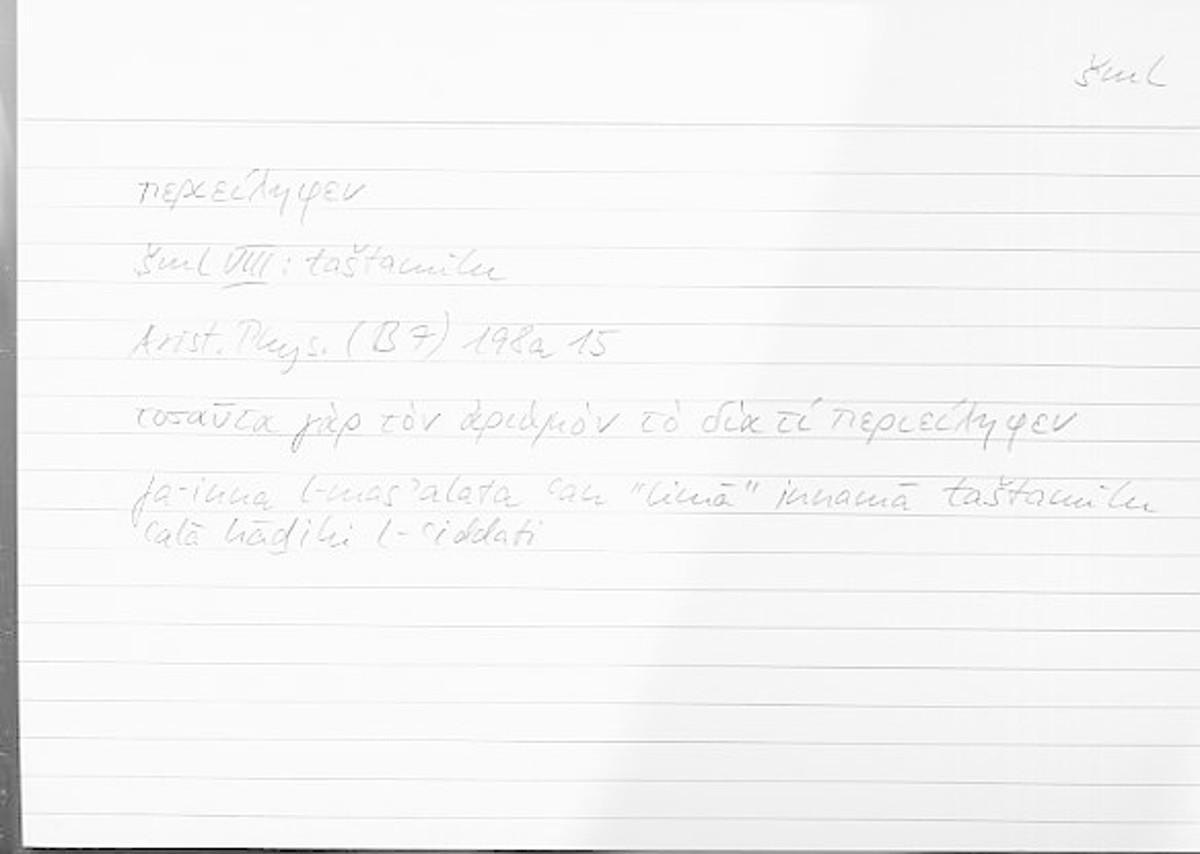 šml
περιείληφεν
šml VIII: taštamilu
Arist. Phys. (B 7) 198a 15
τοσαῦτα γὰρ τὸν ἀριθμὸν τὸ διὰ τί περιείληφεν
fa-inna l-masʾalata ʿan "limā" innamā taštamilu
ʿalā hāḏihi l-ʿiddati